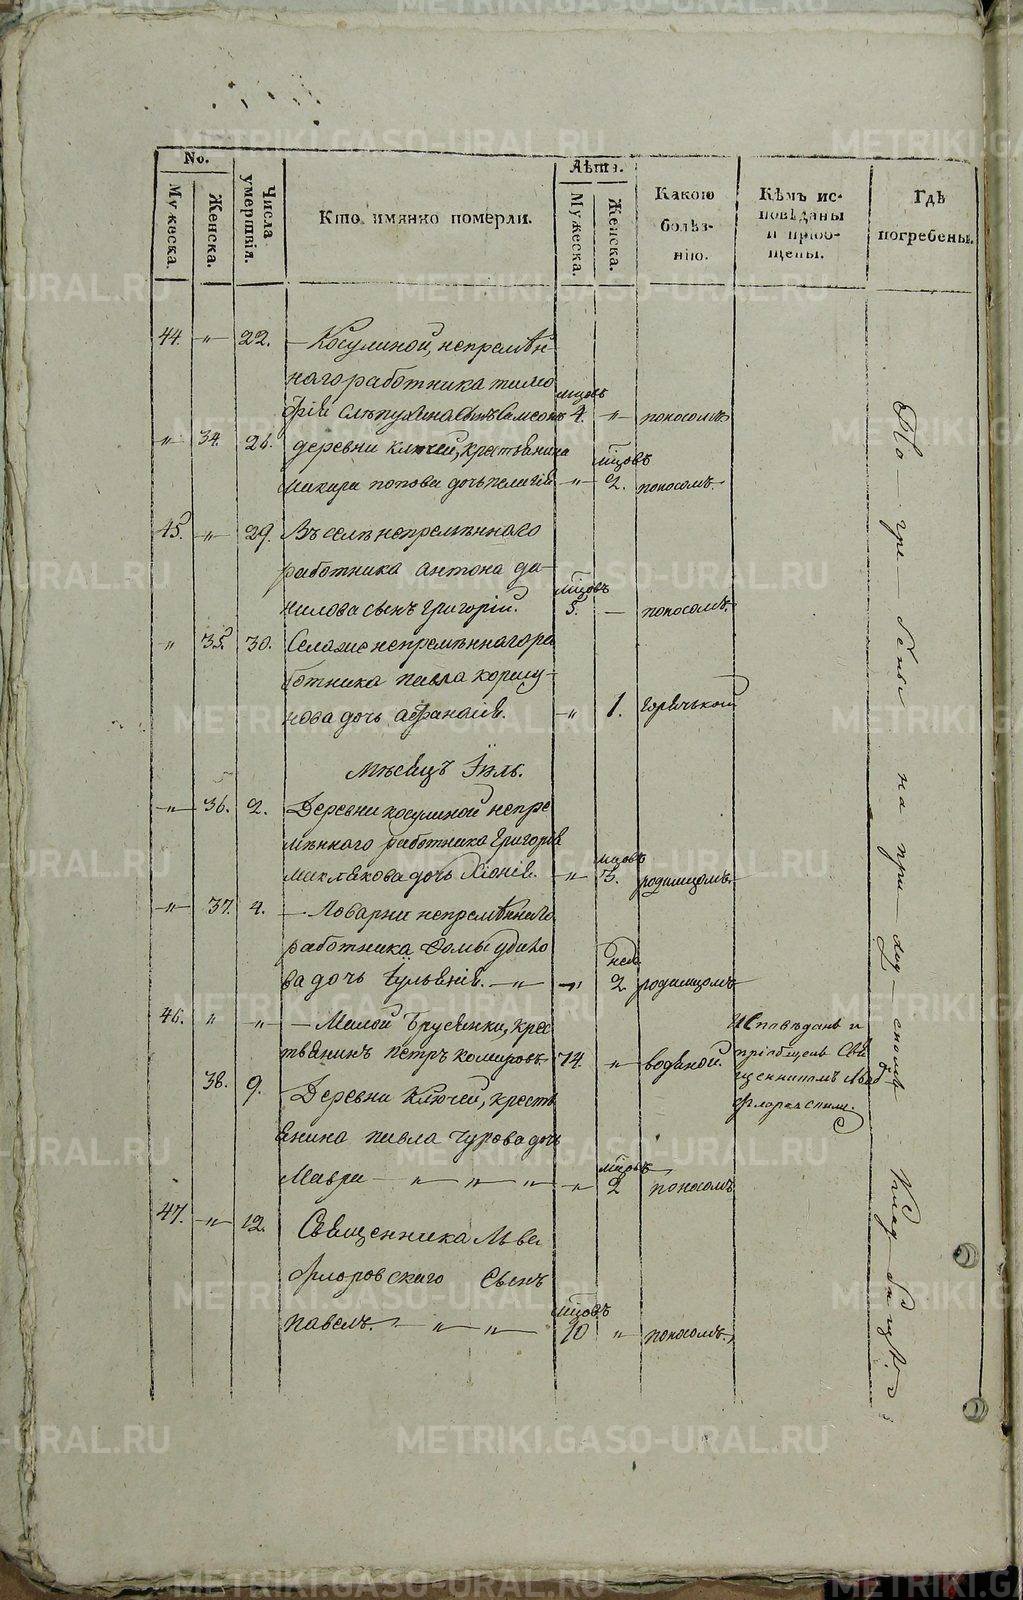 METRIKI.GASO-URAL.RU
No. Лѣта.
Мужеска. Женска. Числа умертвія. Кто имянно померли. Мужеска. Женска. Какою болѣз-нію. Кѣмъ ис-повѣданы и пріоб-щены. Гдѣ погребены.
44. „ 22. Косулиной, непремѣн-
наго работника тимо
фѣй сына Самсонъ мцовъ 4. „ поносомъ
„ 34. деревни ключей, крестьянина
Макара попова дочь пелагія „ мцовъ 2. поносомъ.
45. „ 29. Въ селѣ непремѣннаго
работника антона да-
нилова сынъ григорій. мцовъ 5. — поносомъ.
„ 35. 30. Села же непремѣннаго ра
ботника павла коршу-
нова дочь афанасія. „ 1. горячькой
Мѣсяцъ Іюль.
„ 36. 2. Деревни косулиной непре
мѣннаго работника Григорія
дочь Хіонія. „ мцовъ 3. родимцомъ.
„ 37. 4. — непремѣннаго
работника Фомы удило
ва дочь Іульянія. „ „ нед. 2 родимцомъ
46. „ „ — Малой Брусянки, крес
тьянинъ петръ комаровъ. 74. „ водяной. Исповѣданъ и
пріобщенъ Свя
щенникомъ Львомъ
Флоровскимъ.
38. 9. Деревни Ключей, кресть
янина павла чурова дочь
Мавра „ „ „ „ мцовъ 2 поносомъ
47. „ 12. Священника Льва
Флоровскаго сынъ
павелъ. „ „ мцовъ 10 „ поносомъ.
По гре бены на при ход скомъ клад бищѣ.